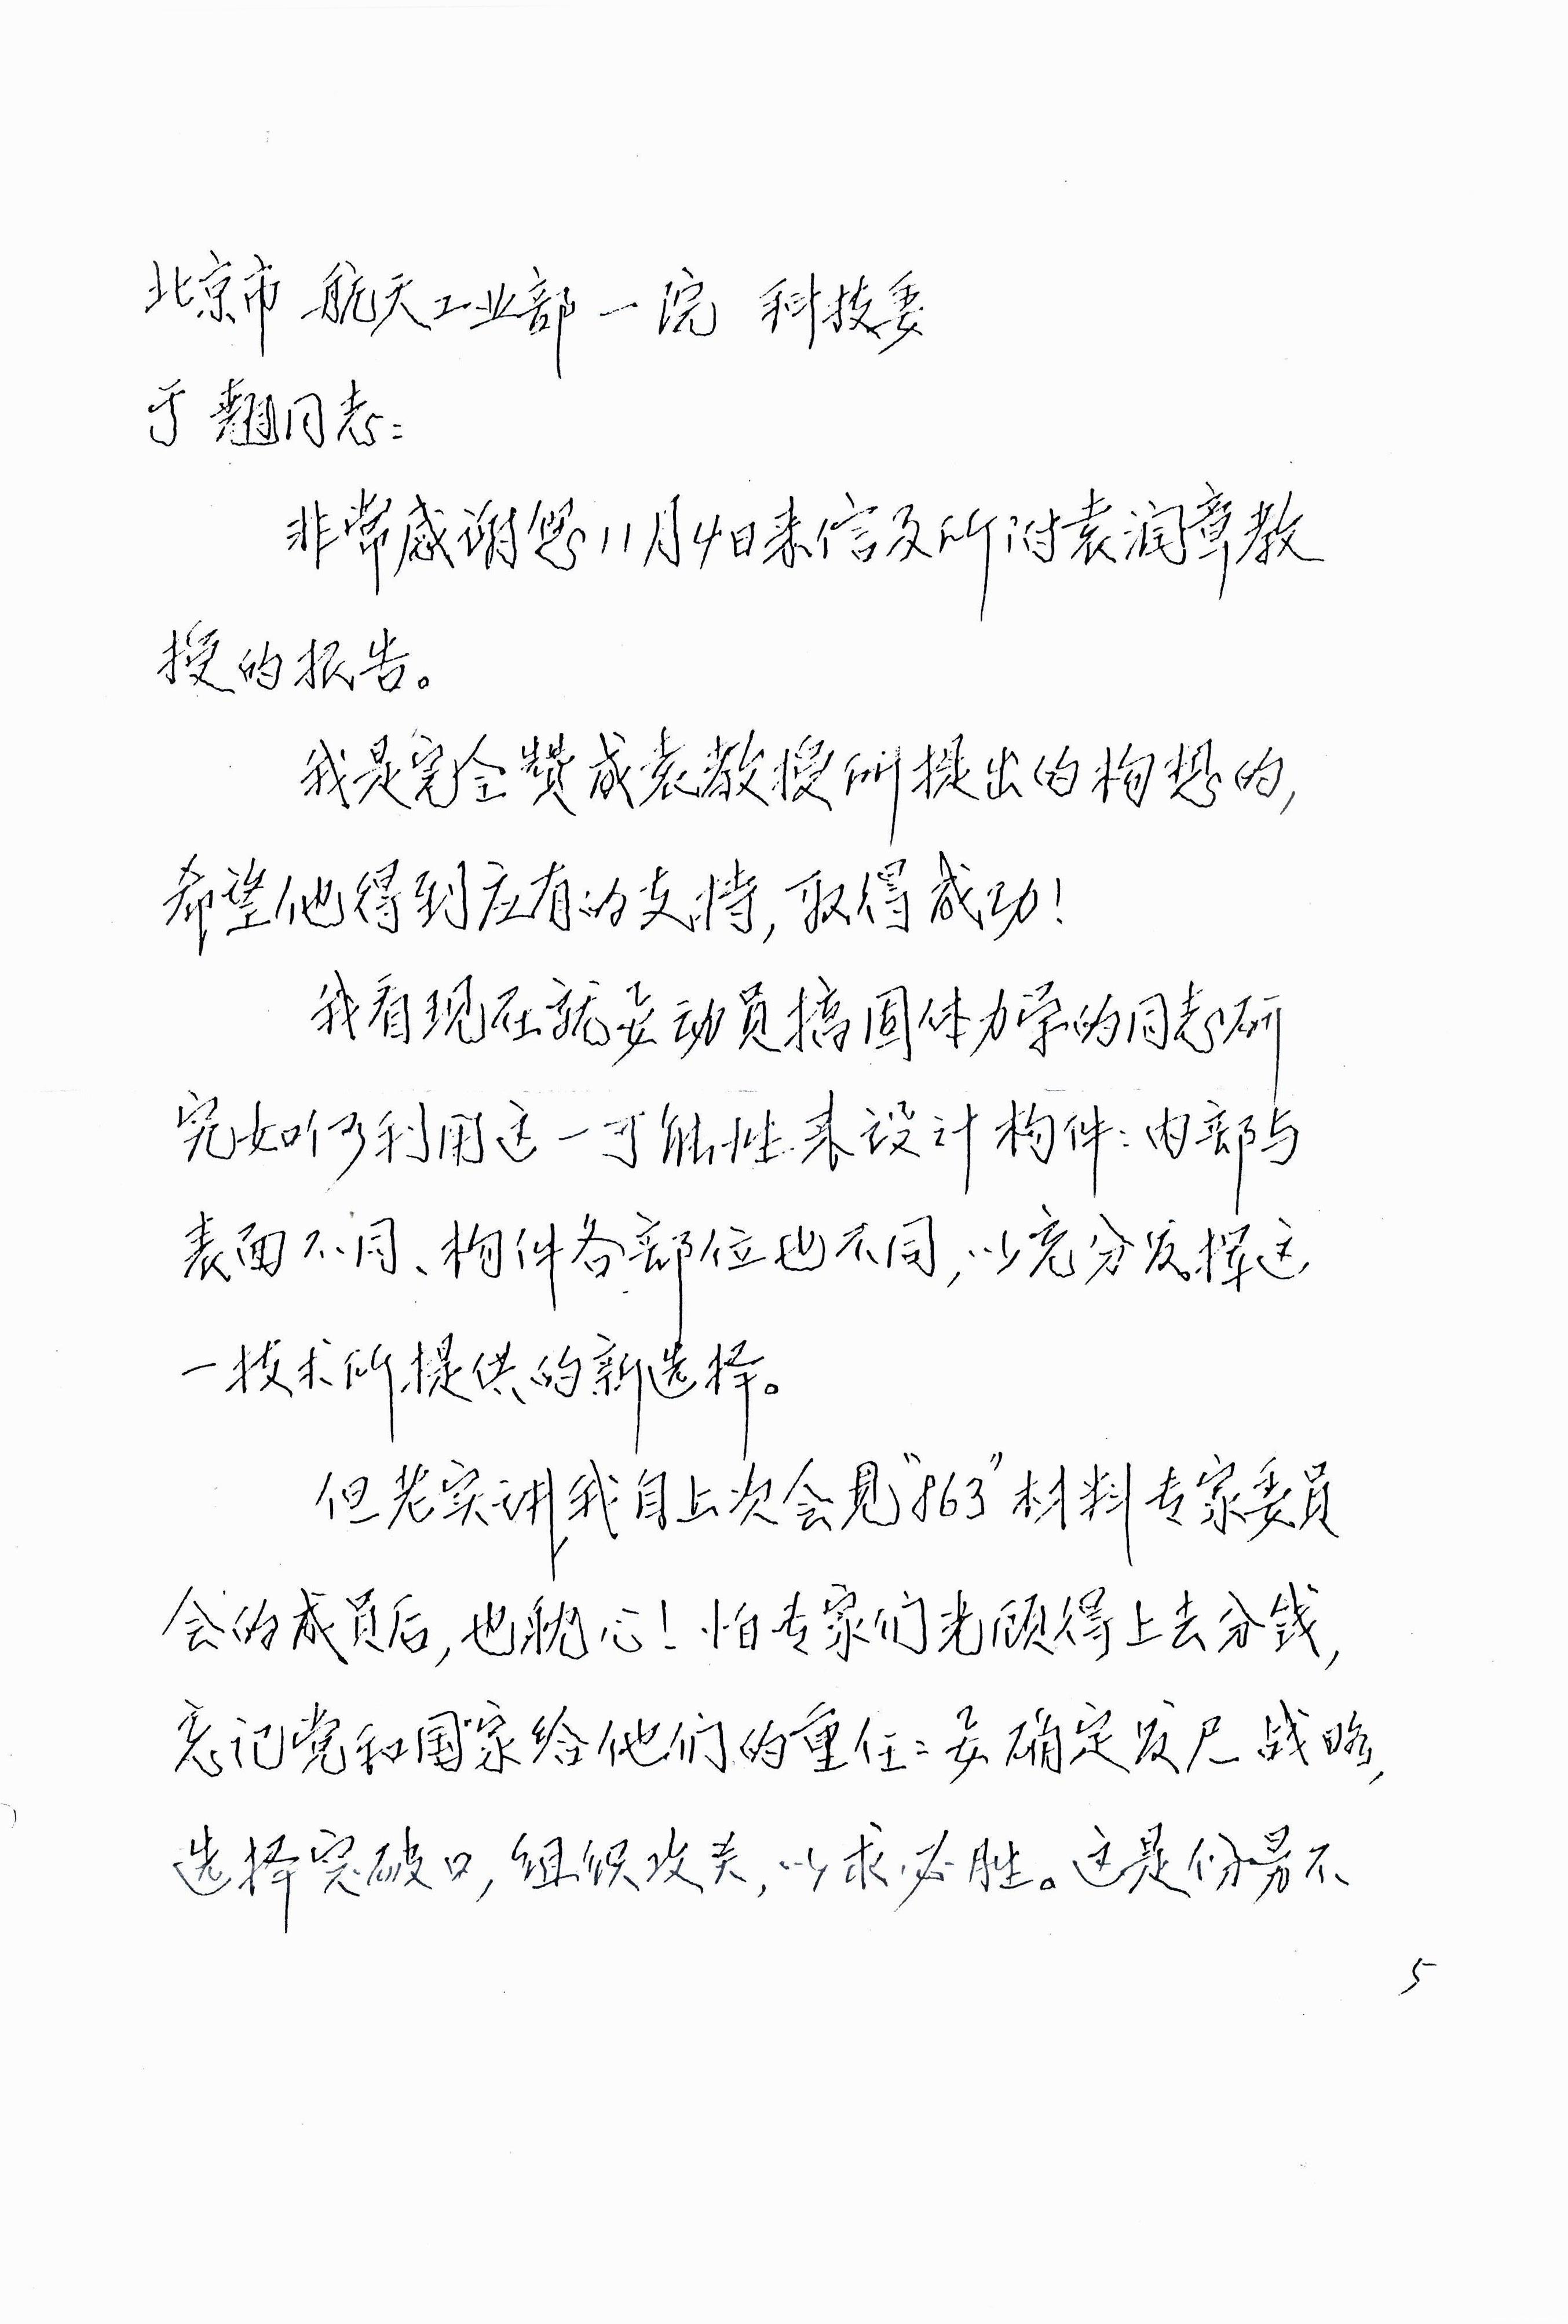 北京市 航天工业部一院 科技委
于翘同志：
非常感谢您11月4日来信及所附袁润章教
授的报告。
我是完全赞成袁教授所提出的构想的，
希望他得到应有的支持，取得成功！
我看现在就要动员搞固体力学的同志研
究如何利用这一可能性来设计构件：内部与
表面不同、构件各部位也不同，以充分发挥这
一技术所提供的新选择。
但老实讲，我自上次会见“863”材料专家委员
会的成员后，也耽心！怕专家们光顾得上去分钱，
忘记党和国家给他们的重任：要确定发展战略，
选择突破口，组织攻关，以求必胜。这是份易不
5